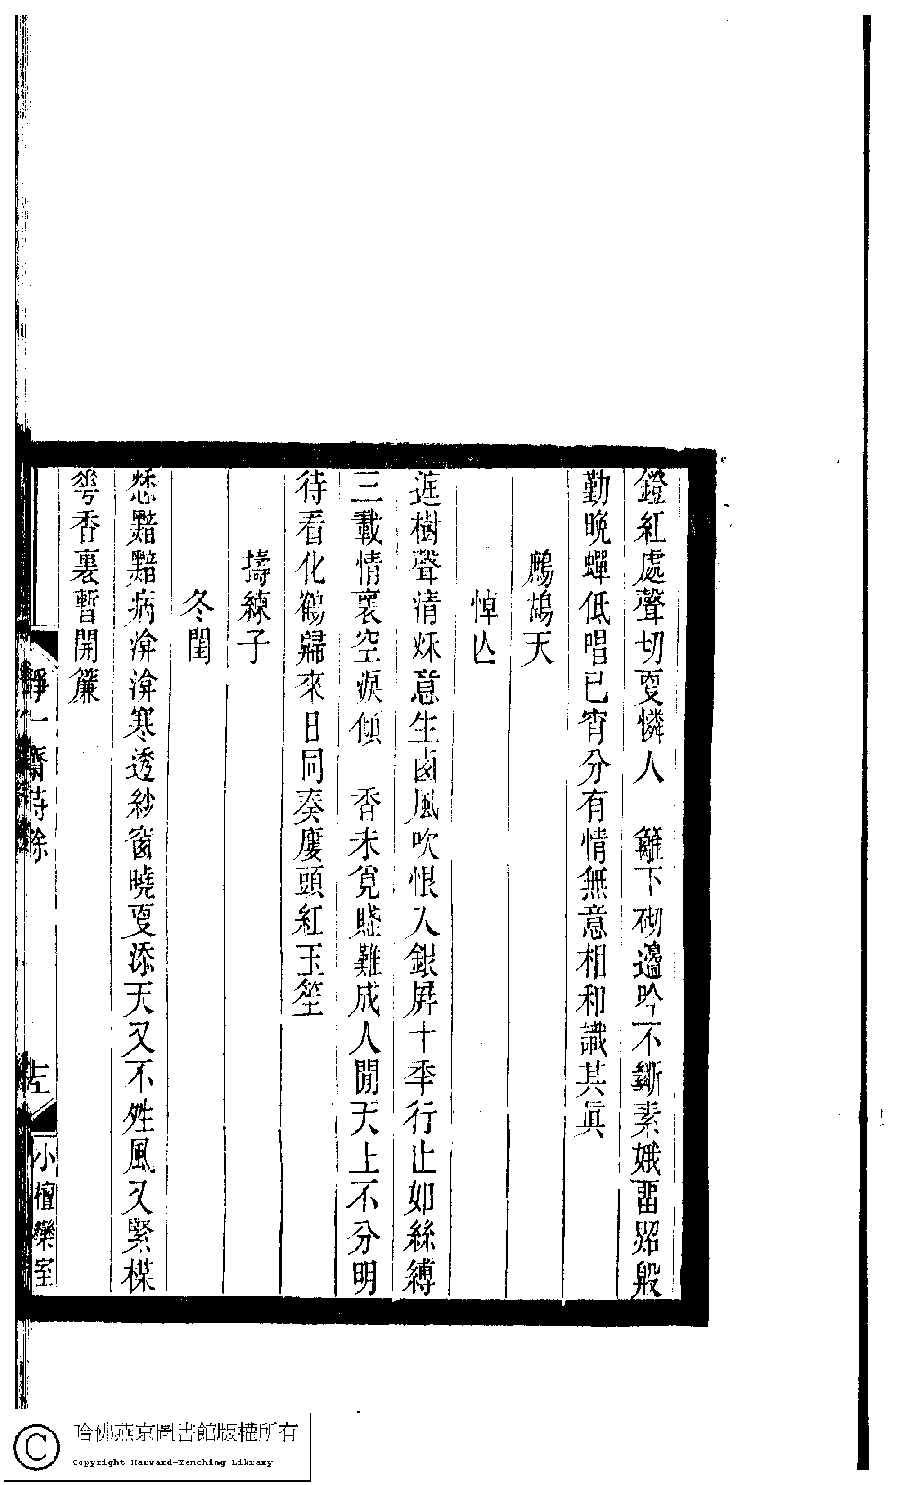 鐙紅處聲切㪅憐人　籬下砌邊吟不斷素娥畱照殷
勤晚蟬低唱已宵分有情無意相和識其眞
鷓鴣天
悼亾
庭樹聲清秌意生鹵風吹恨入銀屏十秊行止如絲縛
三載情裏空淚傾　香未覓賸難成人閒天上不分明
待看化鶴歸來日同奏廔頭紅玉笙
擣練子
冬閨
愁黯黯病渰渰寒透紗窗曉㪅添天又不姓風又緊楳
香裏暫開簾
靜一齋詩餘
小檀欒室
哈佛燕京圖書館版權所有
Copyright Harvard-Yenching Library